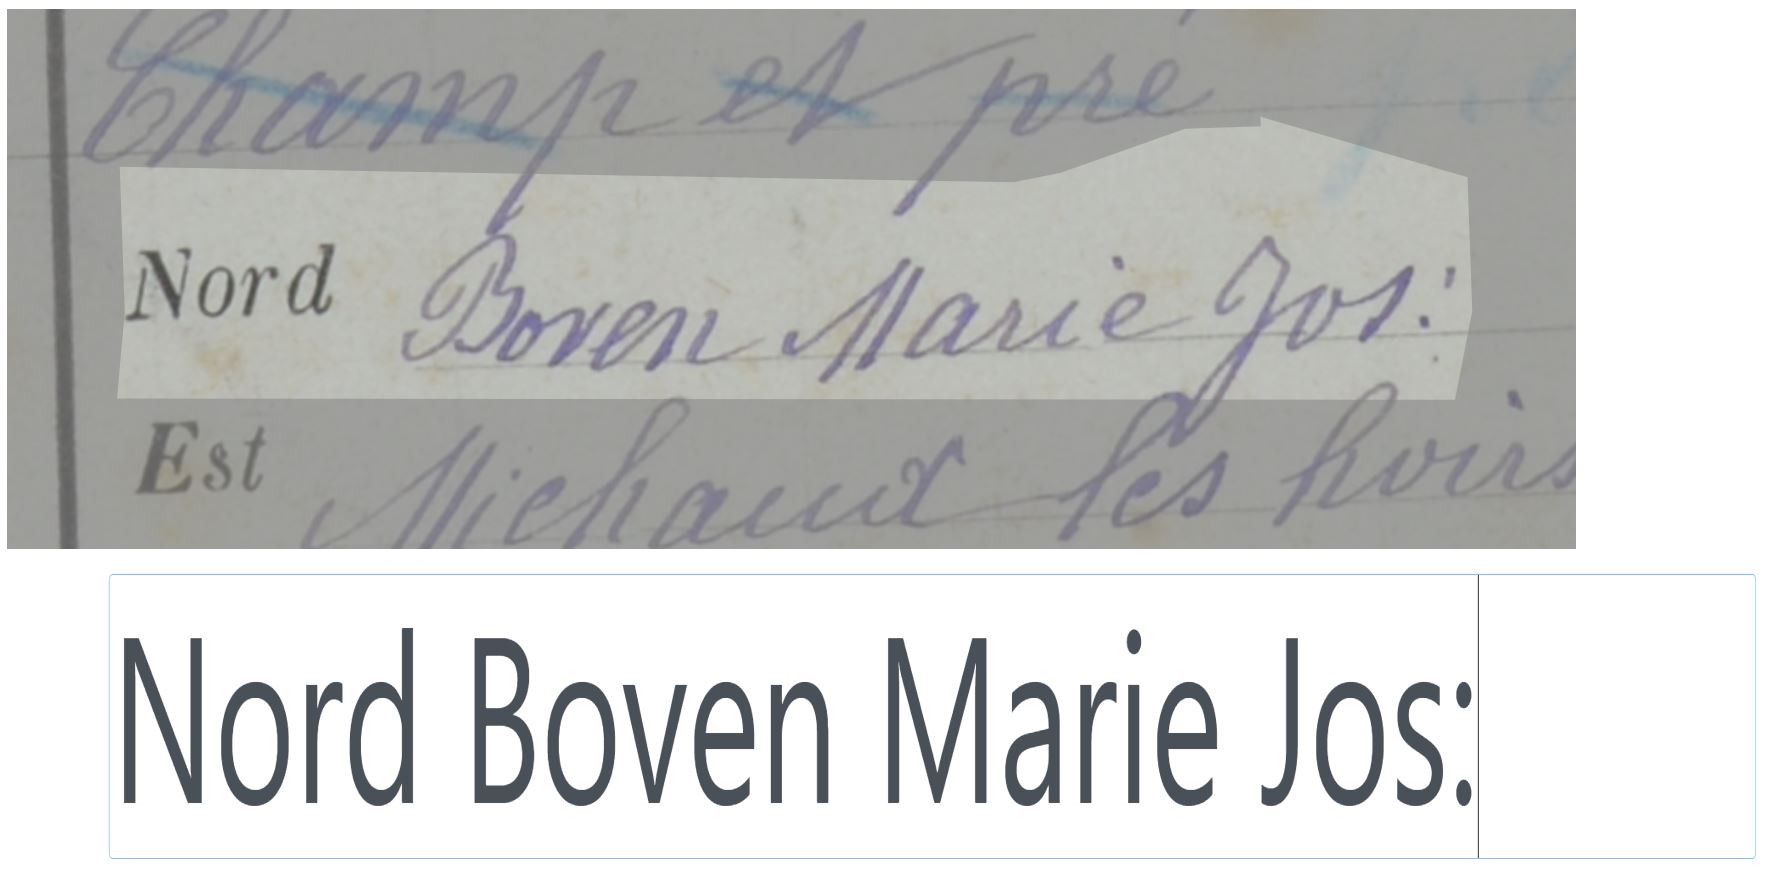 Champ et pré
Nord Boven Marie Jos:
Est Michaux les hoirs
Nord Boven Marie Jos: